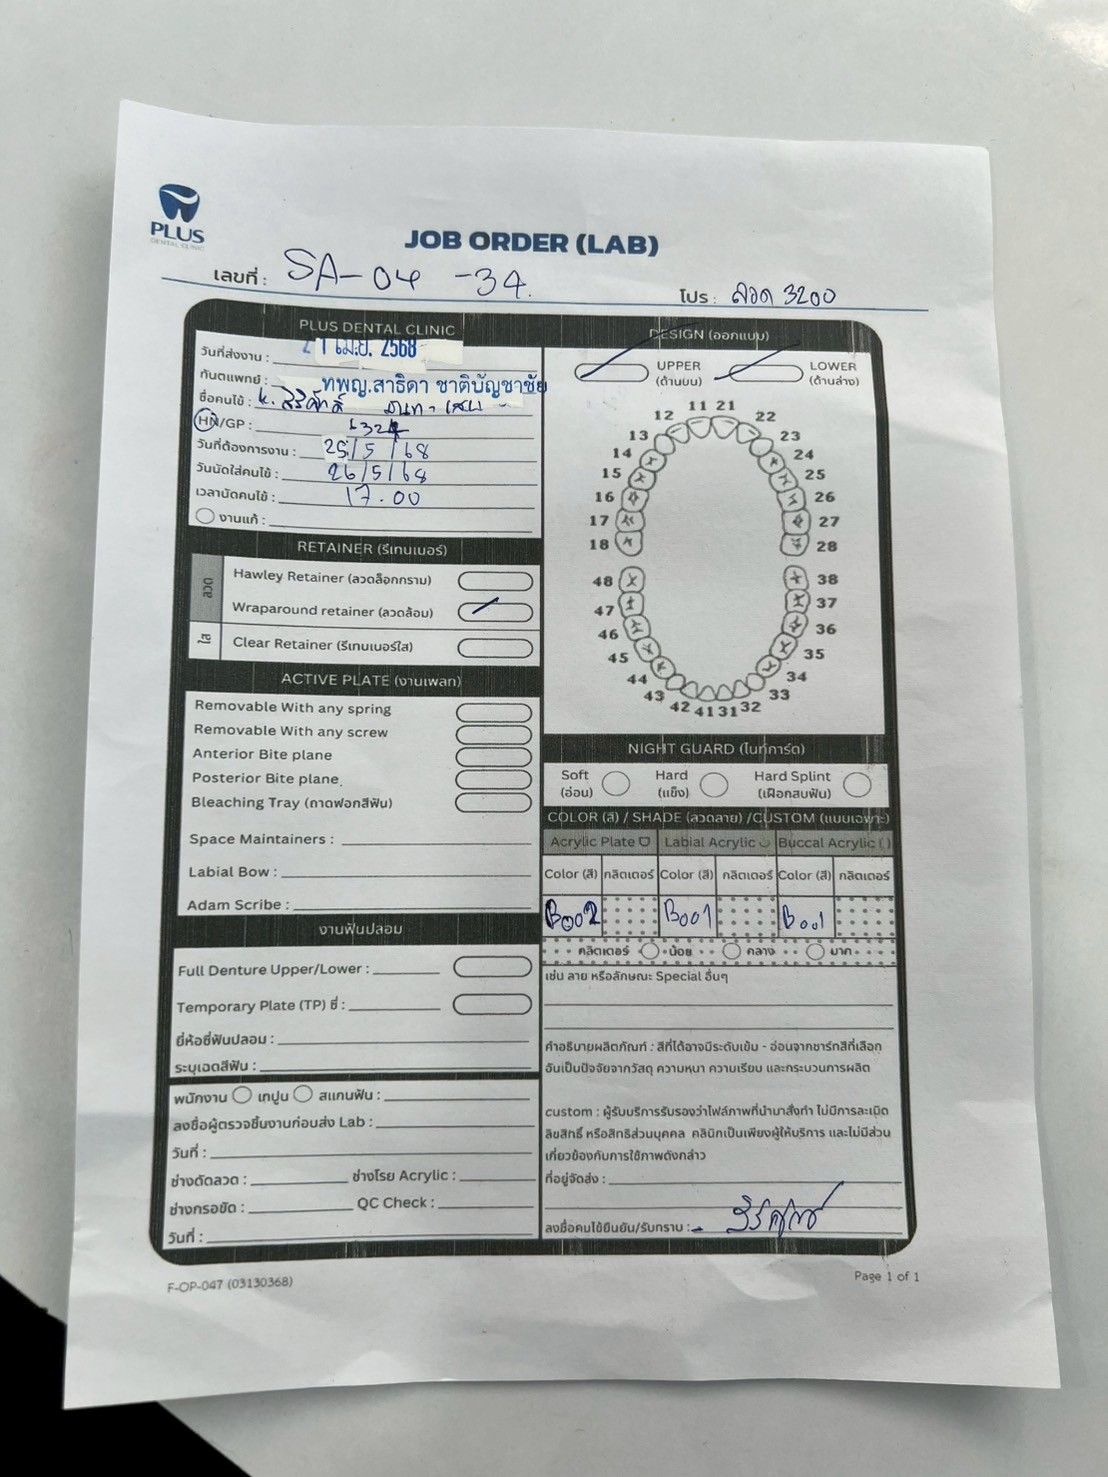 PLUS
DENTAL CLINIC
JOB ORDER (LAB)
เลขที่ : SA-04 -34.
โปร : ลวด 3200
PLUS DENTAL CLINIC
วันที่ส่งงาน : 21 เม.ย. 2568
ทันตแพทย์ : ทพญ.สาธิดา ชาติบัญชาชัย
ชื่อคนไข้ : K. สิริศักดิ์
HN/GP :
วันที่ต้องการงาน : 25/5/68
วันนัดใส่คนไข้ : 26/5/68
เวลานัดคนไข้ : 17.00
งานแก้ :
RETAINER (รีเทนเนอร์)
ลวด
Hawley Retainer (ลวดล็อกกราม)
Wraparound retainer (ลวดล้อม)
ใส
Clear Retainer (รีเทนเนอร์ใส)
ACTIVE PLATE (งานเพลท)
Removable With any spring
Removable With any screw
Anterior Bite plane
Posterior Bite plane
Bleaching Tray (ถาดฟอกสีฟัน)
Space Maintainers :
Labial Bow :
Adam Scribe :
งานฟันปลอม
Full Denture Upper/Lower :
Temporary Plate (TP) ซี่ :
ยี่ห้อซี่ฟันปลอม :
ระบุเฉดสีฟัน :
พนักงาน เทปูน สแกนฟัน :
ลงชื่อผู้ตรวจชิ้นงานก่อนส่ง Lab :
วันที่ :
ช่างดัดลวด : ช่างโรย Acrylic :
ช่างกรอขัด : QC Check :
วันที่ :
DESIGN (ออกแบบ)
UPPER (ด้านบน)
LOWER (ด้านล่าง)
11 21
12 22
13 23
14 24
15 25
16 26
17 27
18 28
48 38
47 37
46 36
45 35
44 34
43 33
42 41 31 32
NIGHT GUARD (ไนท์การ์ด)
Soft (อ่อน)
Hard (แข็ง)
Hard Splint (เฝือกสบฟัน)
COLOR (สี) / SHADE (ลวดลาย) /CUSTOM (แบบเฉพาะ)
Acrylic Plate Labial Acrylic Buccal Acrylic ( )
Color (สี) กลิตเตอร์ Color (สี) กลิตเตอร์ Color (สี) กลิตเตอร์
B002 B001 B001
กลิตเตอร์ น้อย กลาง มาก
เช่น ลาย หรือลักษณะ Special อื่นๆ
คำอธิบายผลิตภัณฑ์ : สีที่ได้อาจมีระดับเข้ม - อ่อนจากชาร์ทสีที่เลือก
อันเป็นปัจจัยจากวัสดุ ความหนา ความเรียบ และกระบวนการผลิต
custom : ผู้รับบริการรับรองว่าไฟล์ภาพที่นำมาสั่งทำ ไม่มีการละเมิด
ลิขสิทธิ์ หรือสิทธิส่วนบุคคล คลินิกเป็นเพียงผู้ให้บริการ และไม่มีส่วน
เกี่ยวข้องกับการใช้ภาพดังกล่าว
ที่อยู่จัดส่ง :
ลงชื่อคนไข้ยืนยัน/รับทราบ :
F-OP-047 (03130368)
Page 1 of 1